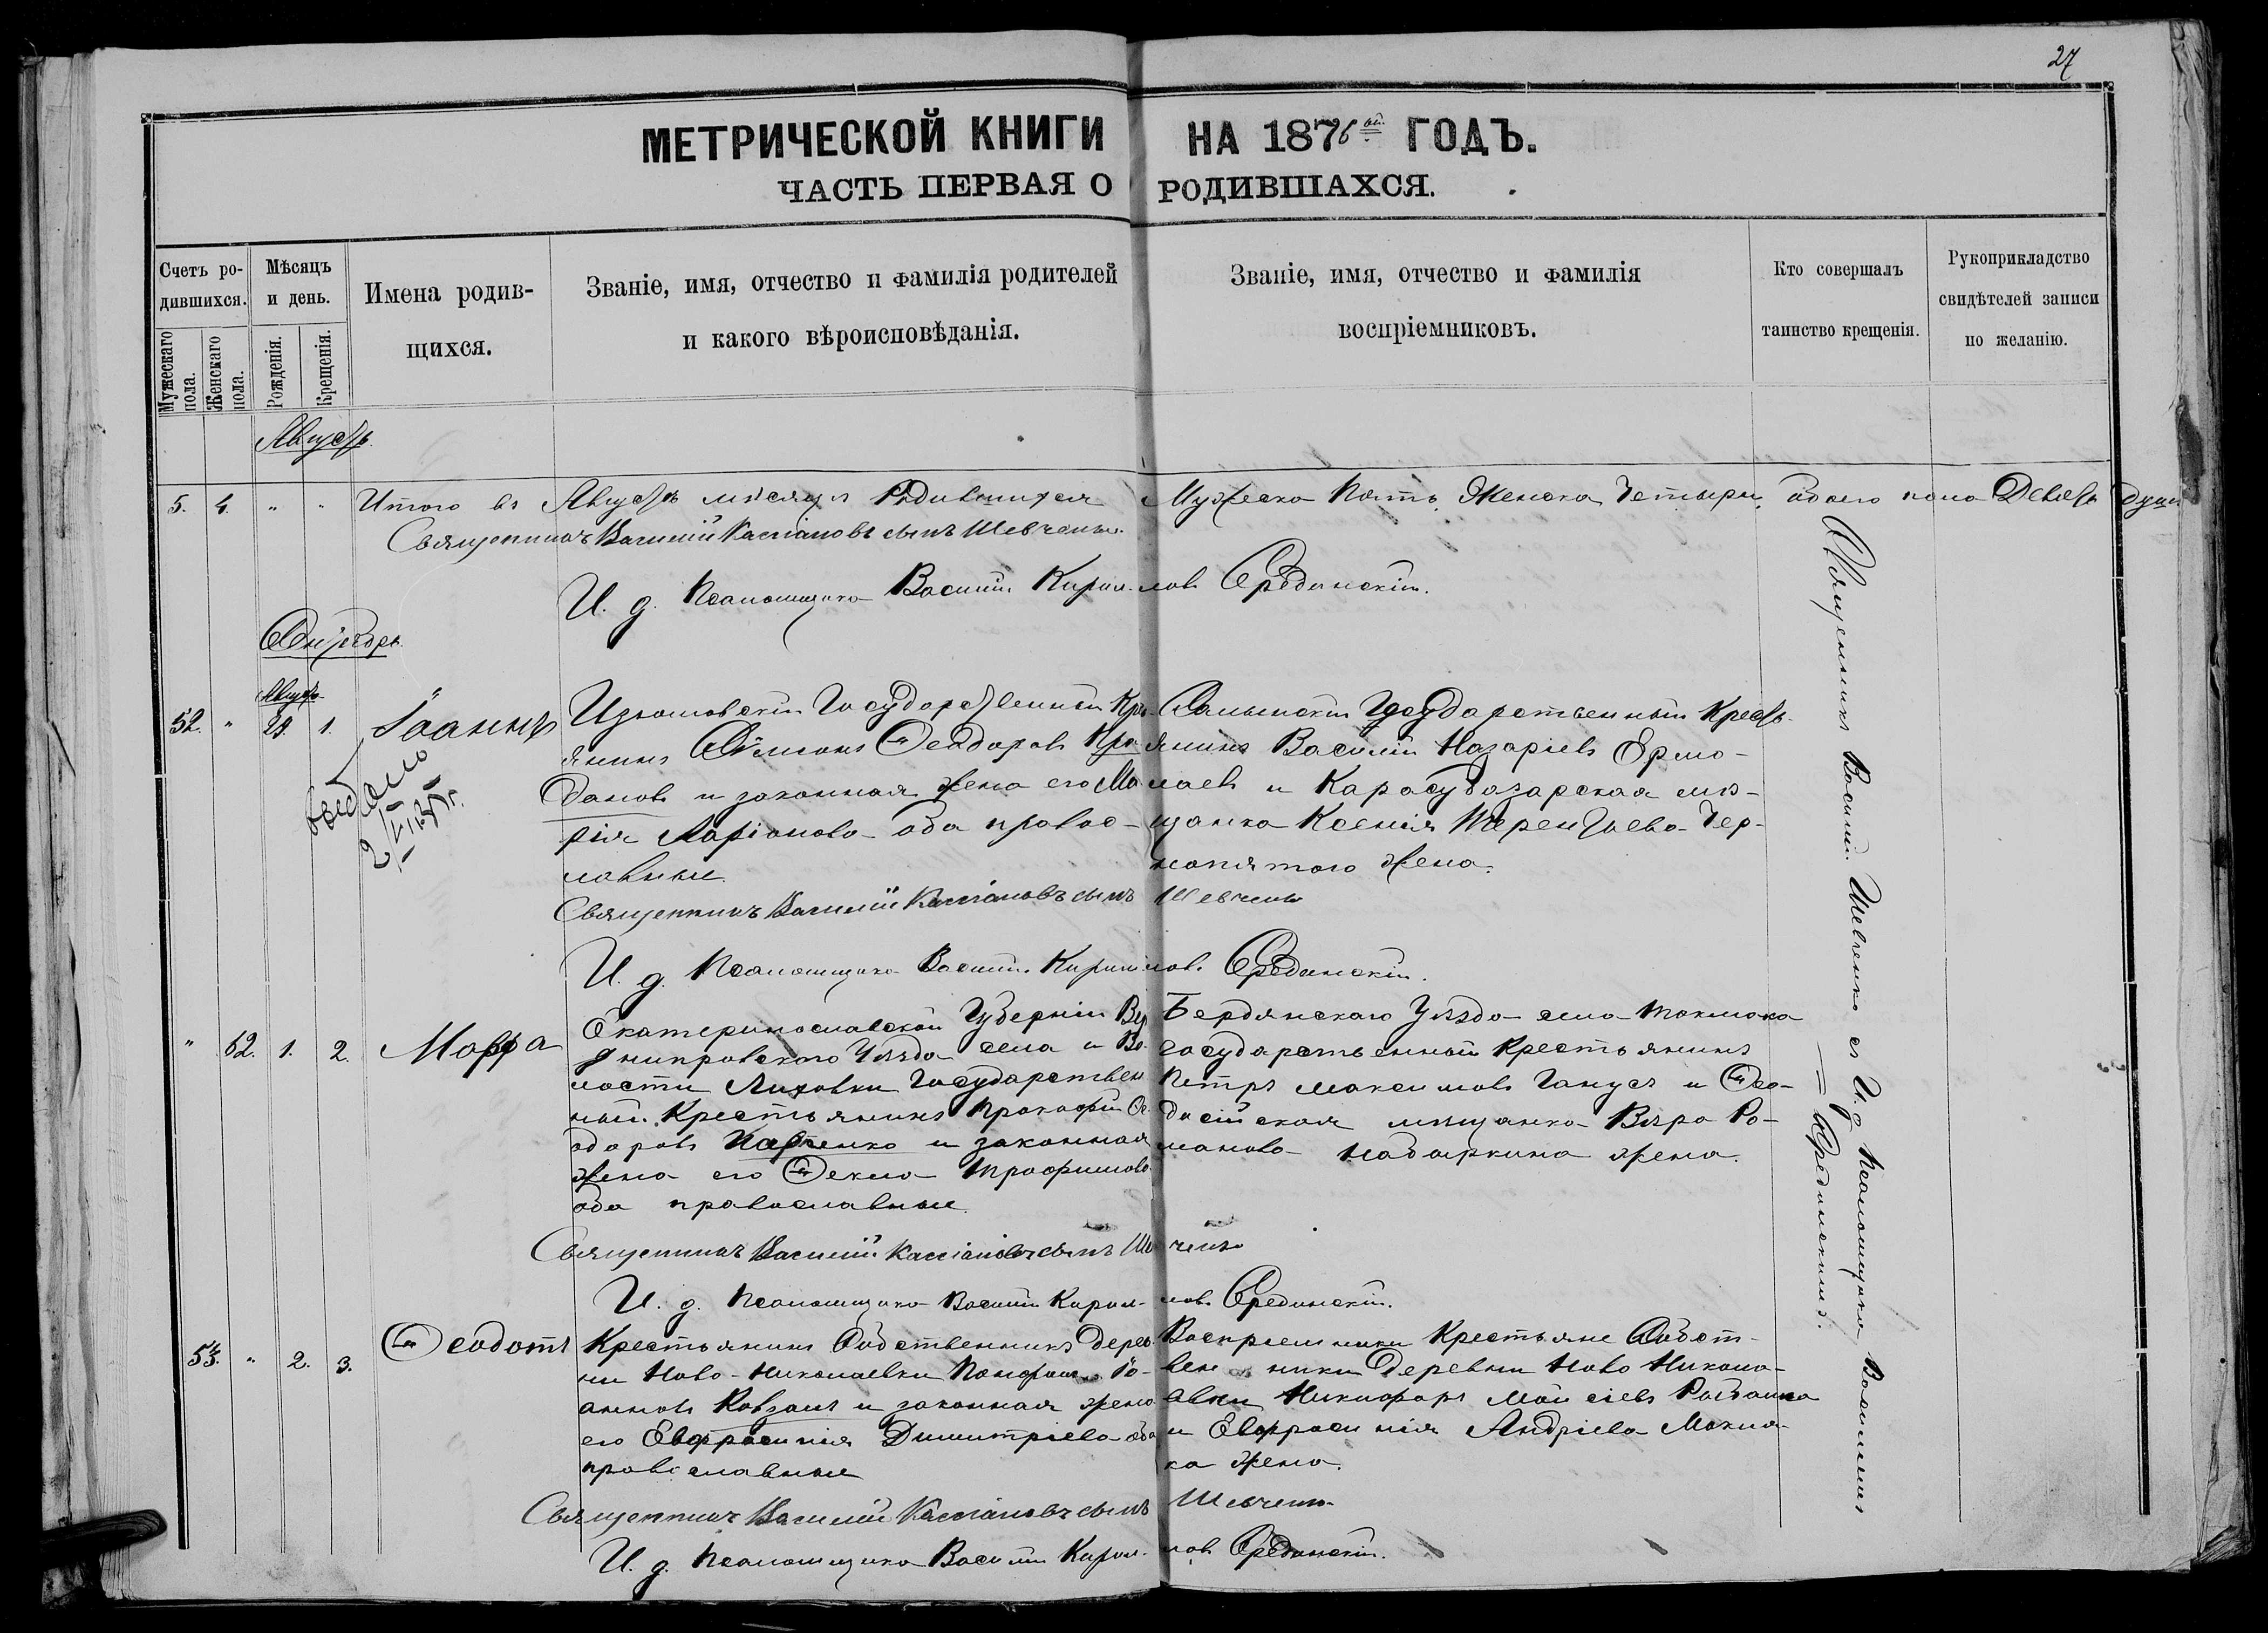 27
МЕТРИЧЕСКОЙ КНИГИ НА 1876ой ГОДЪ.
ЧАСТЬ ПЕРВАЯ О РОДИВШАХСЯ.
Счетъ ро-
дившихся.
Мужескаго пола.
Женскаго пола.
Мѣсяцъ
и день.
Рожденія.
Крещенія.
Имена родив-
щихся.
Званіе, имя, отчество и фамилія родителей
и какого вѣроисповѣданія.
Званіе, имя, отчество и фамилія
воспріемниковъ.
Кто совершалъ
таинство крещенія.
Рукоприкладство
свидѣтелей записи
по желанію.
Августъ.
5. 4. " " Итого въ Августѣ мѣсяцѣ Родившихся Мужеска Пять, Женска Четыри, обоего пола Девять душъ
Священникъ Василій Кассіановъ сынъ Шевченко.
И. д. Псаломщика Василій Кирил-ловъ Срединскій.
Сентябрь.
Август
52. " 29. 1. Іоаннъ
выдано
Изюмовскій Государственный Кре-
янинъ Сѵмеонъ Ѳеодоровъ
дановъ и законная жена его Ма
рія Ларіонова оба правос-
лавные.
Салынскій Государственный Кресть-
янинъ Василій Назаріевъ Ермо-
лаевъ и Карасубазарская мѣ-
щанка Ксенія Терентьева Чер-
нопятого жена.
Священникъ Василій Кассіановъ сынъ Шевченко
И. д. Псаломщика Василій Кириловъ. Срединскій.
" 62. 1. 2. Марфа
Екатеринославской Губерніи Вер
днипровского Уѣзда села и Во-
лости Лиховки Государствен
ный Крестьянинъ Прокофій Ѳе-
одоровъ и законная
жена его Ѳекла Трофимова
оба православные.
Бердянскаго Уѣзда села Токмока
государственный Крестьянинъ
Петръ Максимовъ Ганусъ и Ѳео-
досійская мѣщанка Вѣра Ро-
манова жена.
Священникъ Василій Кассіановъ сынъ Шевченко
И. д. Псаломщика Василій Кирил-ловъ. Срединскій.
53. " 2. 3. Ѳеодотъ
Крестьянинъ Собственникъ Дерев-
ни Ново-Николаевки Іо-
анновъ Ковзалъ и законная жена
его Евфросинія Димитріева оба
православные
Воспріемники Крестьяне Собст-
венники Деревни Ново Никола-
евки Никифоръ Моисіевъ
и Евфросинія Андріева Макла-
ка жена.
Священникъ Василій Кассіановъ сынъ Шевченко
И. д. Псаломщика Василій Кирил-ловъ Срединскій.
Священникъ Василій Шевченко съ И. д. Псаломщика Василіемъ
Срединскимъ.